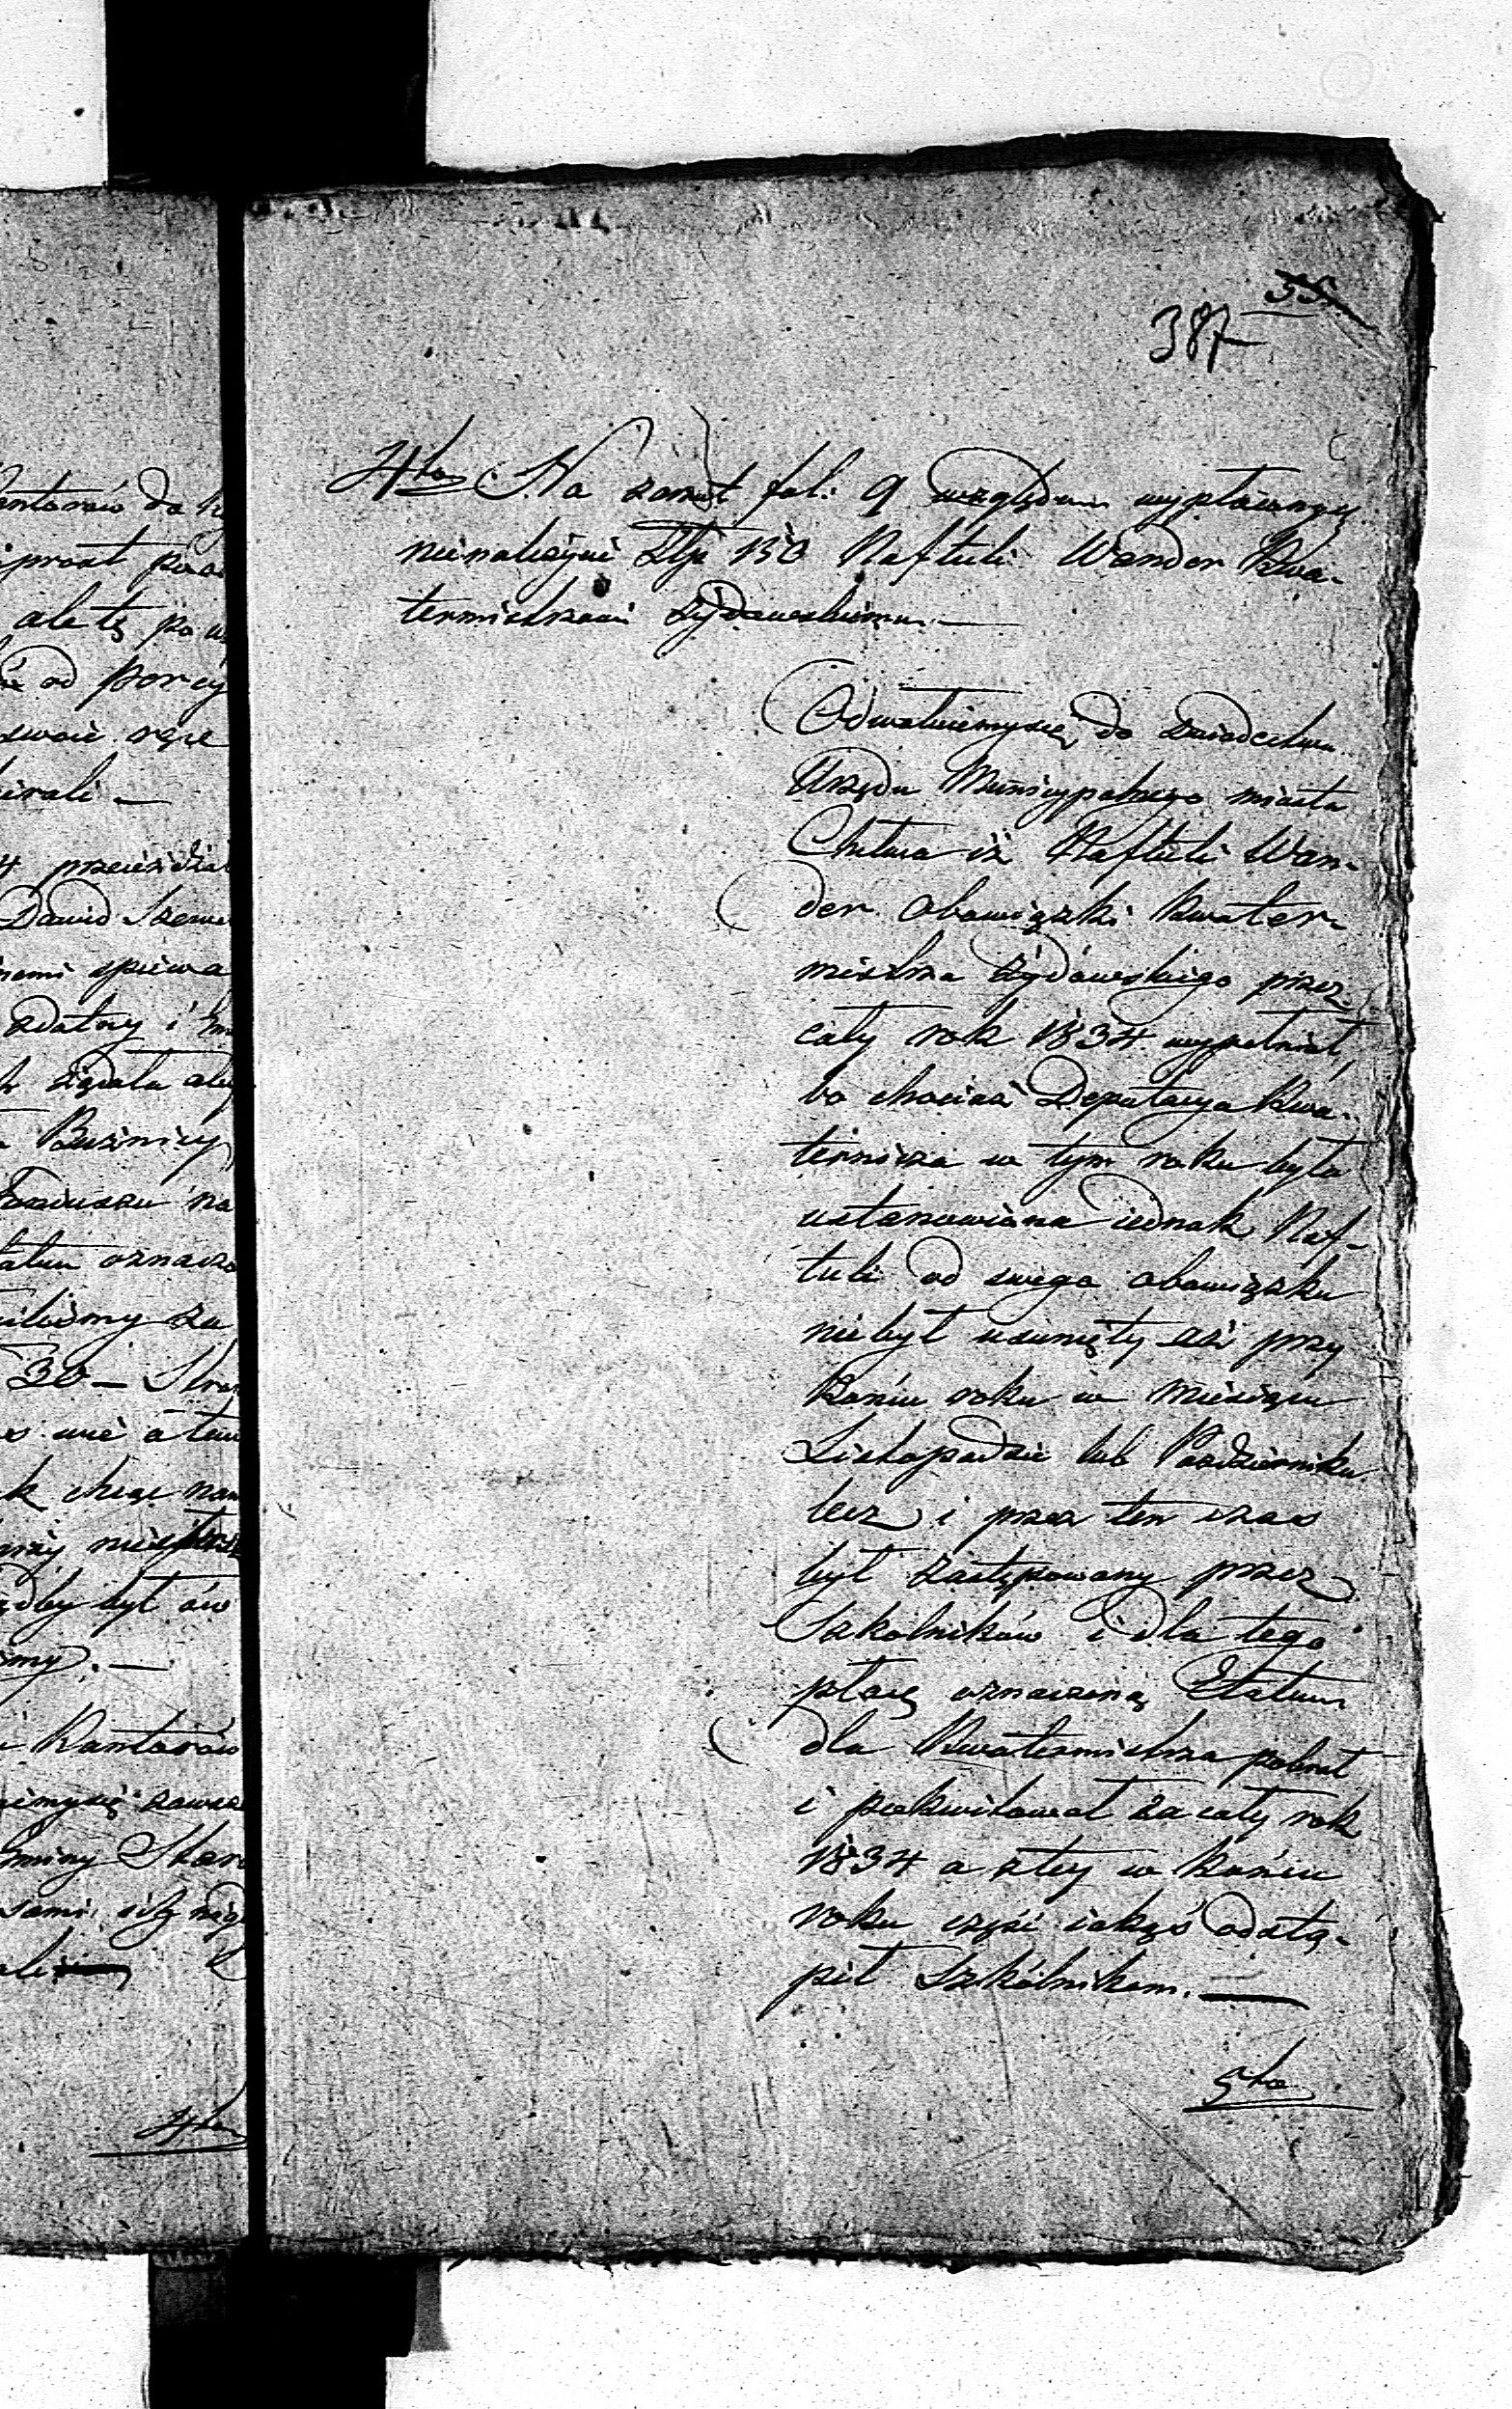 55
387
4to Na zarzut fol: 9 względem wypłaconych
nienależnie Złp 150 Naftuli Wander Kwa-
termistrzowi Żydowskiemu.—
Odwołuiemysię do Swiadectwa
Urzędu Municypalnego miasta
Chełma iż Naftuli Wan-
der obowiązki Kwater-
mistrza Żydowskiego przez
cały rok 1834 wypełniał,
bo chociaż Deputacya Kwa-
ternicza w tym roku była
ustanowiona iednak Naf-
tuli od swego obowiązku
niebył usunięty aż przy
końcu roku w Miesiącu
Listopadzie lub Pazdzierniku
lecz i przez ten czas
był zastępowany przez
Szkolników i dla tego
płacę oznaczoną Etatem
dla Kwatermistrza pobrał
i pokwitował za cały rok
1834 a ztey w końcu
roku część iakąś odstą-
pił Szkólnikom.—
5to
antorów do
prost
ale tę po
od porcy
swoie ręce
birali —
4 przeiezdża
Dawid Szewc
niemi spiewa
zdatny i
żądała aby
Bużnicy
Fonduszu na
oznaczo
iliśmy za
30 —
k chcąc nam
był ów
imy. —
Kantorów
niemysię zawsze
Gminy Staro
sami
4to